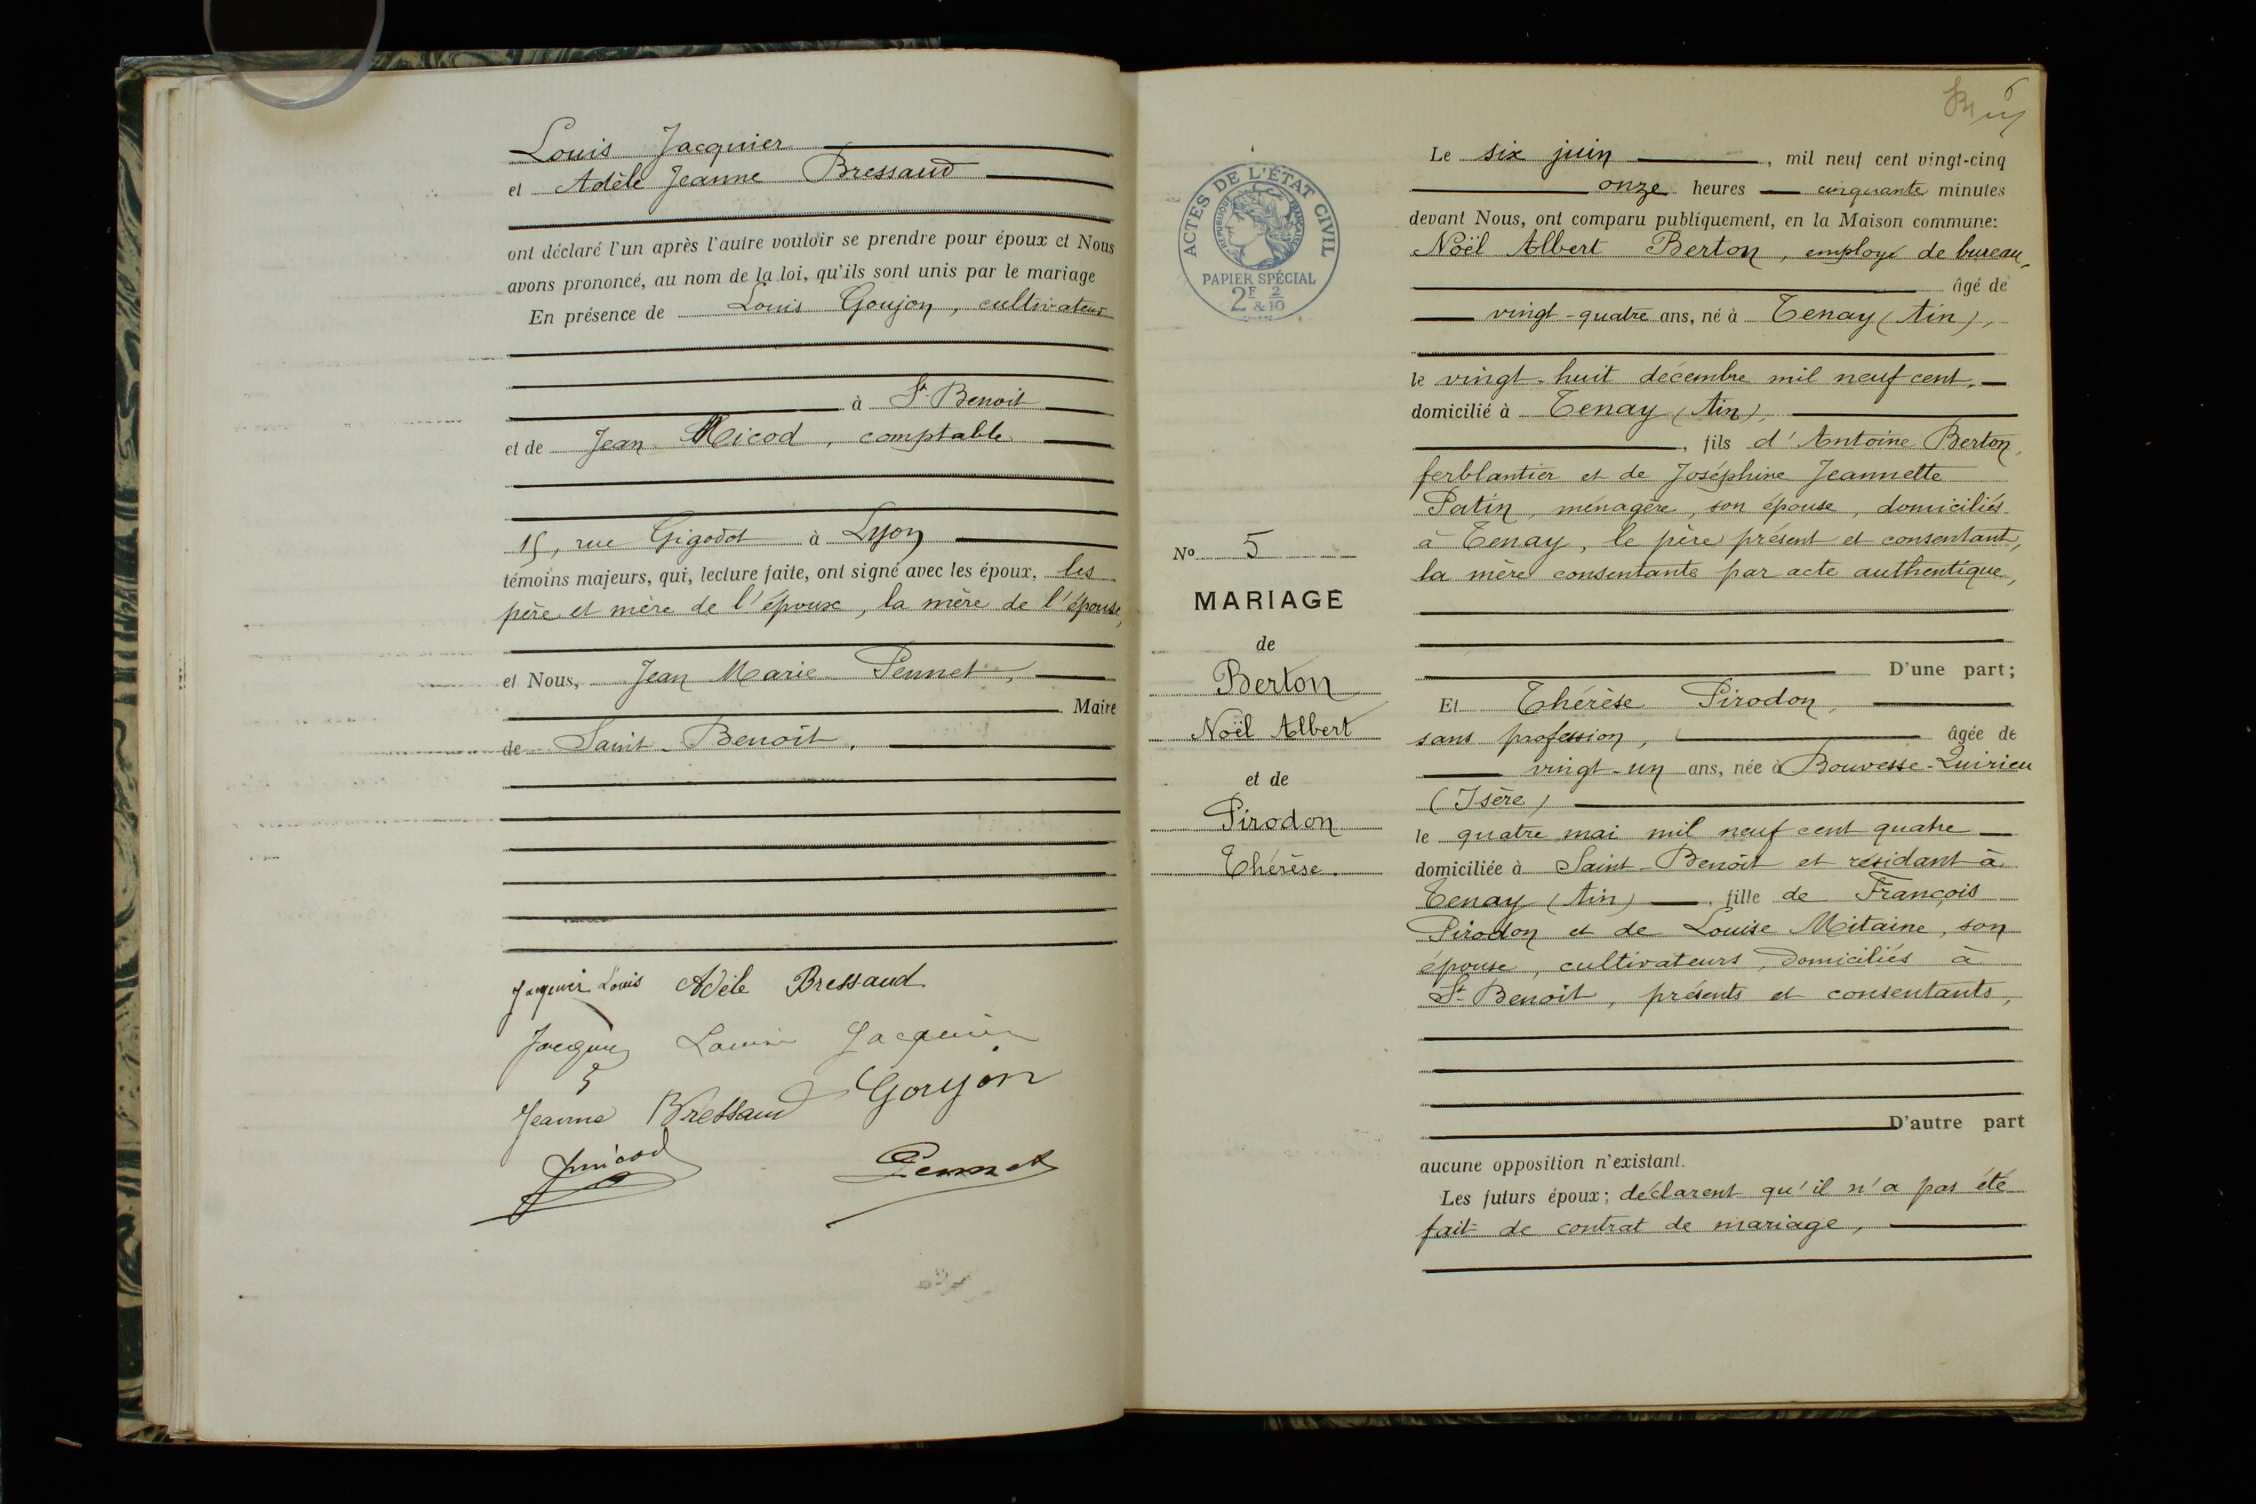 Louis Jacquier
et Adèle Jeanne Bressaud
ont déclaré l'un après l'autre vouloir se prendre pour époux et Nous
avons prononcé, au nom de la loi, qu'ils sont unis par le mariage
En présence de Louis Goujon, cultivateur
à St Benoit
et de Jean Micod, comptable
15, rue Gigodot à Lyon
témoins majeurs, qui, lecture faite, ont signé avec les époux, les
père et mère de l'époux, la mère de l'épouse,
et Nous, Jean Marie Pennet,
Maire
de Saint-Benoît.
Jacquier Louis Adèle Bressaud
Jacquier Louise Jacquier
Jeanne Bressaud Goujon
Jmicod Pennet
6
Le six juin, mil neuf cent vingt-cinq
onze heures cinquante minutes
devant Nous, ont comparu publiquement, en la Maison commune:
Noël Albert Berton, employé de bureau,
âgé de
vingt-quatre ans, né à Tenay (Ain),
le vingt-huit décembre mil neuf cent,
domicilié à Tenay (Ain),
, fils d'Antoine Berton,
ferblantier et de Joséphine Jeannette
Patin, ménagère, son épouse, domiciliés
à Tenay, le père présent et consentant,
la mère consentante par acte authentique,
D'une part;
Et Thérèse Pirodon,
sans profession, âgée de
vingt-un ans, née à Bouvesse-Quirieu
(Isère)
le quatre mai mil neuf cent quatre
domiciliée à Saint-Benoît et résidant à
Tenay (Ain), fille de François
Pirodon et de Louise Mitaine, son
épouse, cultivateurs, domiciliés à
St Benoît, présents et consentants,
D'autre part
aucune opposition n'existant.
Les futurs époux; déclarent qu'il n'a pas été
fait de contrat de mariage,
ACTES DE L'ÉTAT CIVIL
RÉPUBLIQUE FRANÇAISE
PAPIER SPÉCIAL
2F & 2/10
No 5
MARIAGE
de
Berton
Noël Albert
et de
Pirodon
Thérèse.